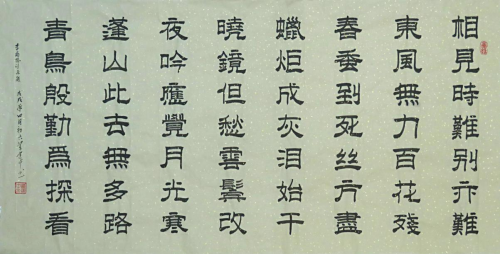 相見時難別亦難
東風無力百花殘
春蚕到死丝方盡
蠟炬成灰泪始干
曉鏡但愁雲鬢改
夜吟應覺月光寒
蓬山此去無多路
青鳥殷勤為探看